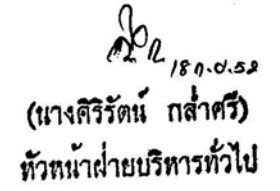 18 ก.ย.52
(นางศิริรัตน์ กล่ำศรี)
หัวหน้าฝ่ายบริหารทั่วไป